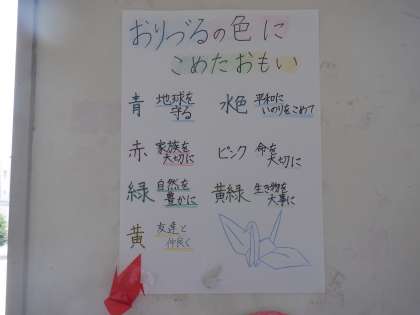 おりづるの色に
こめたおもい
青 地球を
守る
水色 平和に
いのりをこめて
赤 家族を
大切に
ピンク 命を
大切に
緑 自然を
豊かに
黄緑 生き物を
大事に
黄 友達と
仲良く